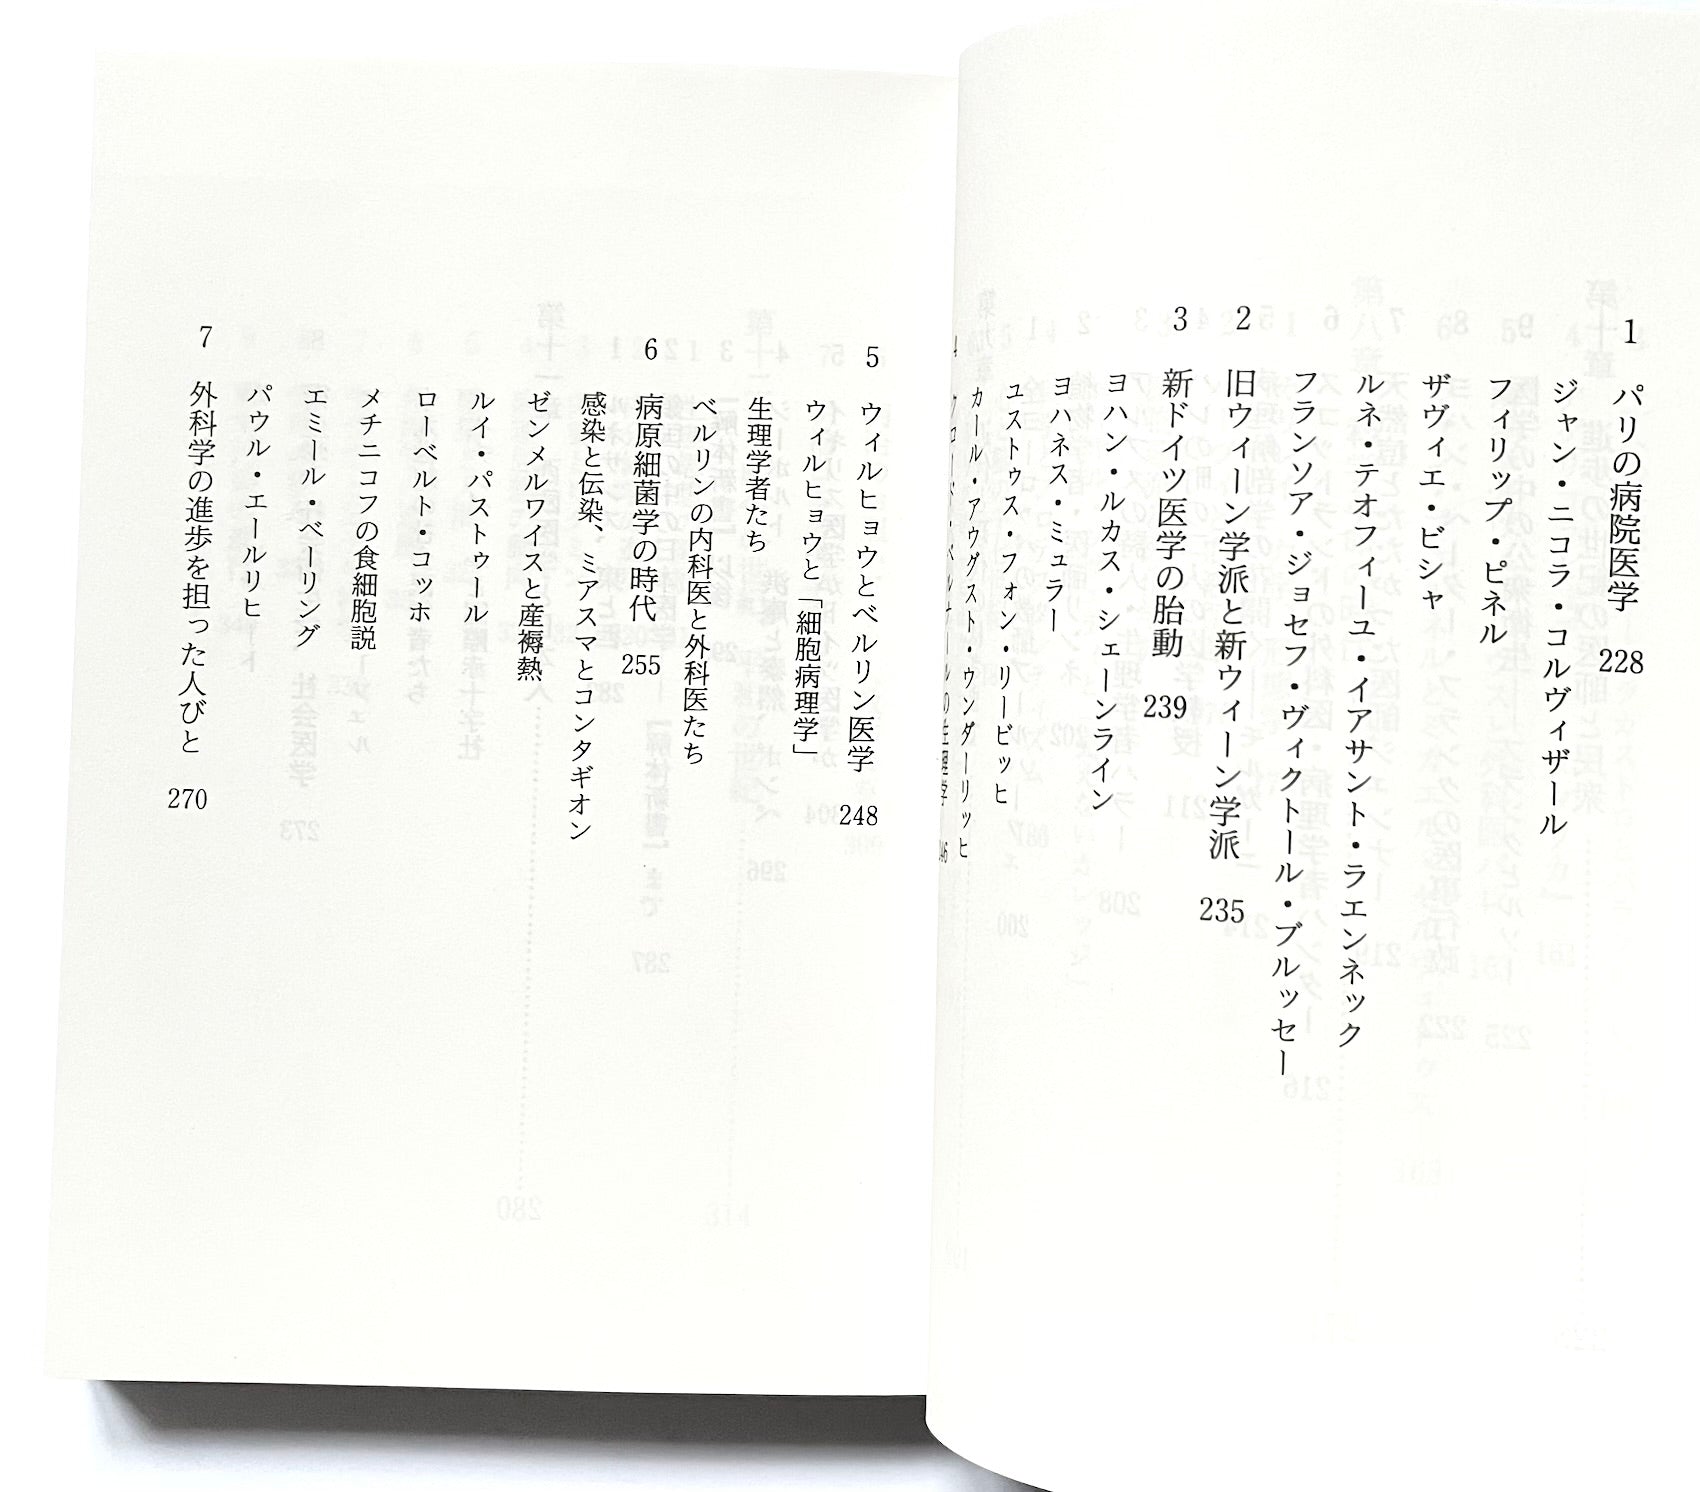 1 パリの病院医学 228
ジャン・ニコラ・コルヴィザール
フィリップ・ピネル
ザヴィエ・ビシャ
ルネ・テオフィーユ・イアサント・ラエンネック
フランソア・ジョセフ・ヴィクトール・ブルッセー
2 旧ウィーン学派と新ウィーン学派 235
3 新ドイツ医学の胎動 239
ヨハン・ルカス・シェーンライン
ヨハネス・ミュラー
ユストゥス・フォン・リービッヒ
カール・アウグスト・ウンダーリッヒ
4 クロード・ベルナールの生理学
5 ウィルヒョウとベルリン医学 248
ウィルヒョウと「細胞病理学」
生理学者たち
ベルリンの内科医と外科医たち
6 病原細菌学の時代 255
感染と伝染、ミアスマとコンタギオン
ゼンメルワイスと産褥熱
ルイ・パストゥール
ローベルト・コッホ
メチニコフの食細胞説
エミール・ベーリング
パウル・エールリヒ
7 外科学の進歩を担った人びと 270